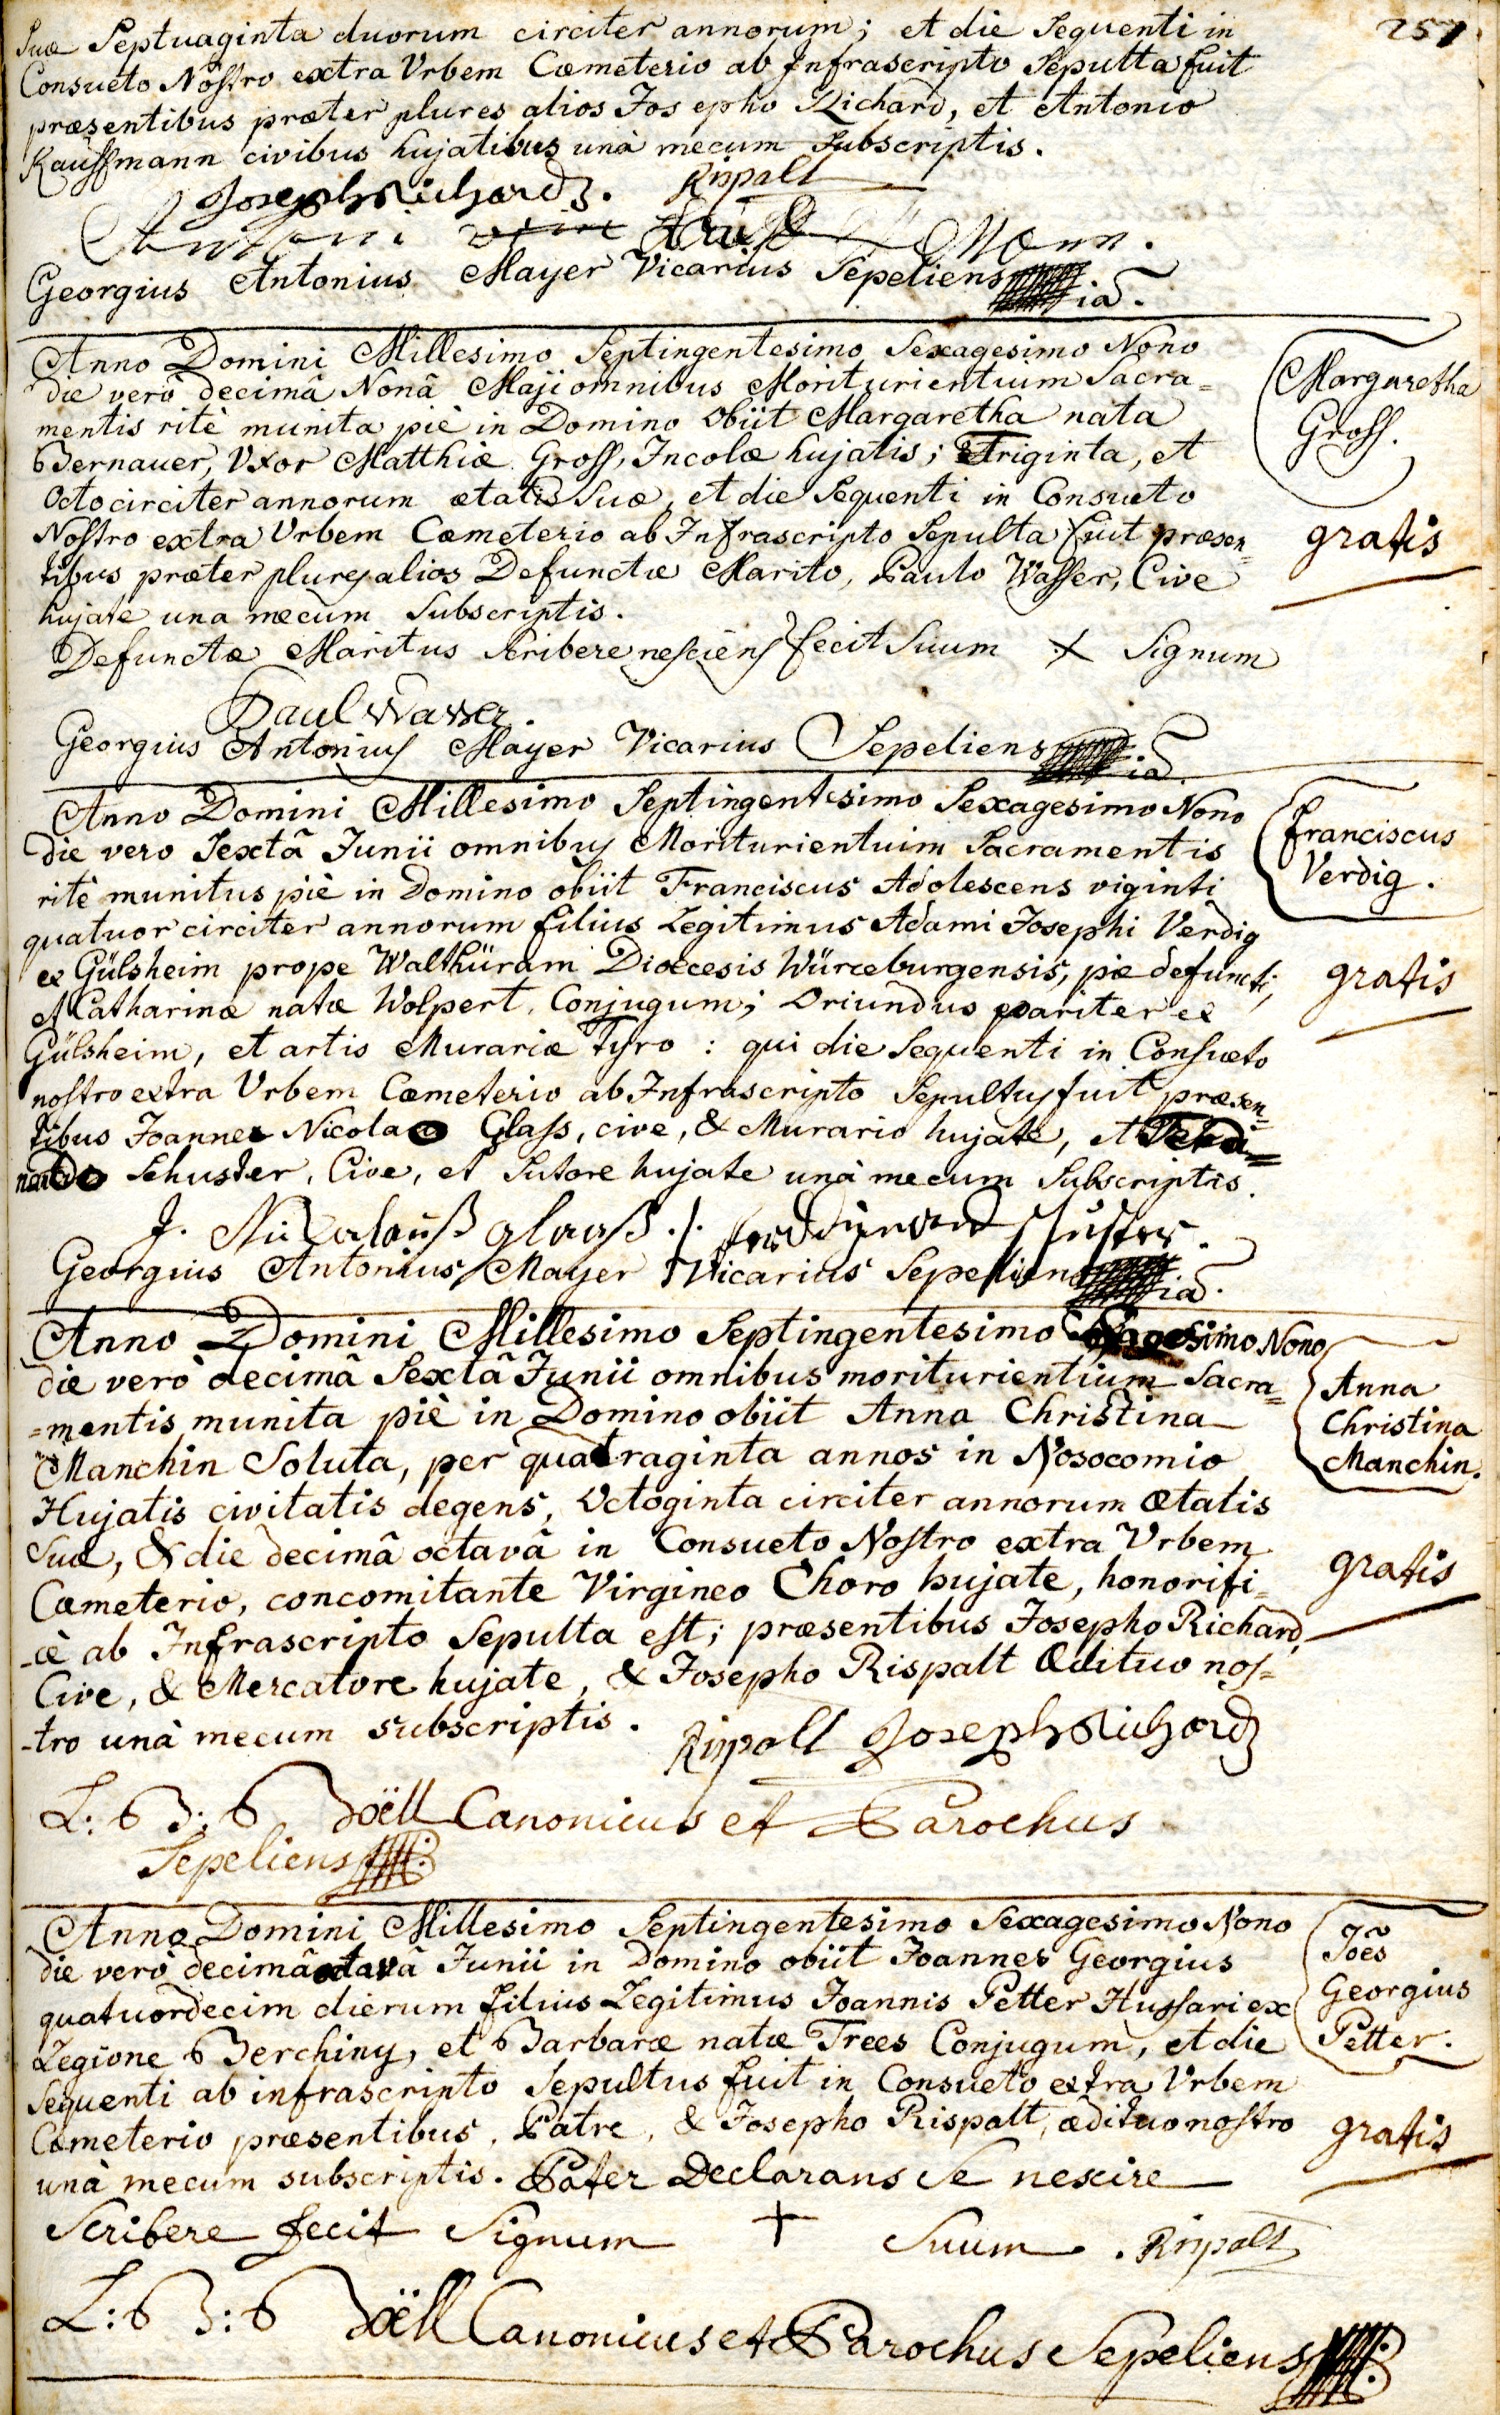 257.
Suæ Septuaginta duorum circiter annorum; et die Sequenti in
Consueto Nostro extra Vrbem Cæmeterio ab Infrascripto Sepulta fuit
præsentibus præter plures alios Josepho Richard, et Antonio
Kauffmann civibus hujatibus unà mecum Subscriptis.
Joseph Richard. Rispalt
Antoni Kauff Mann.
Georgius Antonius Mayer Vicarius Sepeliens
Anno Domini Millesimo Septingentesimo Sexagesimo Nono
die verò decimâ Nonâ Maji omnibus Moriturientuim Sacra=
mentis ritè munita piè in Domino Obiit Margaretha nata
Bernauer, Vxor Matthiæ Gross, Incolæ hujatis; Triginta, et
Octo circiter annorum ætatis Suæ, et die Sequenti in Consueto
Nostro extra Vrbem Cæmeterio ab Infrascripto Sepulta fuit præsen=
tibus præter plures alios Defunctæ Marito, Paulo Wasser, Cive
hujate una mecum Subscriptis.
Defunctæ Maritus Scribere nesciens fecit Suum X Signum
Paul Wasser.
Georgius Antonius Mayer Vicarius Sepeliens
Margaretha
Gross.
gratis
Anno Domini Millesimo Septingentesimo Sexagesimo Nono
die vero Sextâ Junii omnibus Moriturientuim Sacramentis
ritè munitus piè in Domino obiit Franciscus Adolescens viginti
quatuor circiter annorum filius Legitimus Adami Josephi Verdig
ex Gülsheim prope Walthüram Diœcesis Würceburgensis, piæ defuncti,
et Catharinæ natæ Wolpert, Conjugum; Oriundus pariter ex
Gülsheim, et artis Murariæ Tyro: qui die Sequenti in Consueto
nostro extra Vrbem Cæmeterio ab Infrascripto Sepultus fuit præsen=
tibus Joanne Nicolao Glass, cive, & Murario hujate, et Ferdi=
nando Schuster, Cive, et Sutore hujate unà mecum Subscriptis.
J. Nicolauß glaaß ./. ferdinand schuster.
Georgius Antonius Mayer Vicarius Sepeliens
Franciscus
Verdig.
gratis
Anno Domini Millesimo Septingentesimo Sexagesimo Nono
die verò decimâ Sextâ Junii omnibus moriturientium Sacra=
=mentis munita piè in Domino obiit Anna Christina
Manchin Soluta, per quatraginta annos in Nosocomio
Hujatis civitatis degens, Octoginta circiter annorum Ætatis
Suæ, & die decimâ octavâ in Consueto Nostro extra Vrbem
Cæmeterio, concomitante Virgineo Choro hujate, honorifi=
-cè ab Infrascripto Sepulta est; præsentibus Josepho Richard,
Cive, & Mercatore hujate, & Josepho Rispalt Ædituo nos=
-tro unà mecum subscriptis. Rispalt Joseph Richard
L: B: B Doëll Canonicus et Parochus
Sepeliens
Anna
Christina
Manchin.
gratis
Anno Domini Millesimo Septingentesimo Sexagesimo Nono
die verò decimâ octavâ Junii in Domino obiit Joannes Georgius
quatuordecim dierum filius Legitimus Joannis Petter Hussari ex
Legione Berchiny, et Barbaræ natæ Trees Conjugum, et die
Sequenti ab infrascripto Sepultus fuit in Consueto extra Vrbem
Cæmeterio præsentibus, Patre, & Josepho Rispalt, ædituo nostro
unà mecum subscriptis. Pater Declarans Se nescire
Scribere fecit Signum + Suum. Rispalt
L: B: B Doëll Canonicus et Parochus Sepeliens
Joës
Georgius
Petter.
gratis